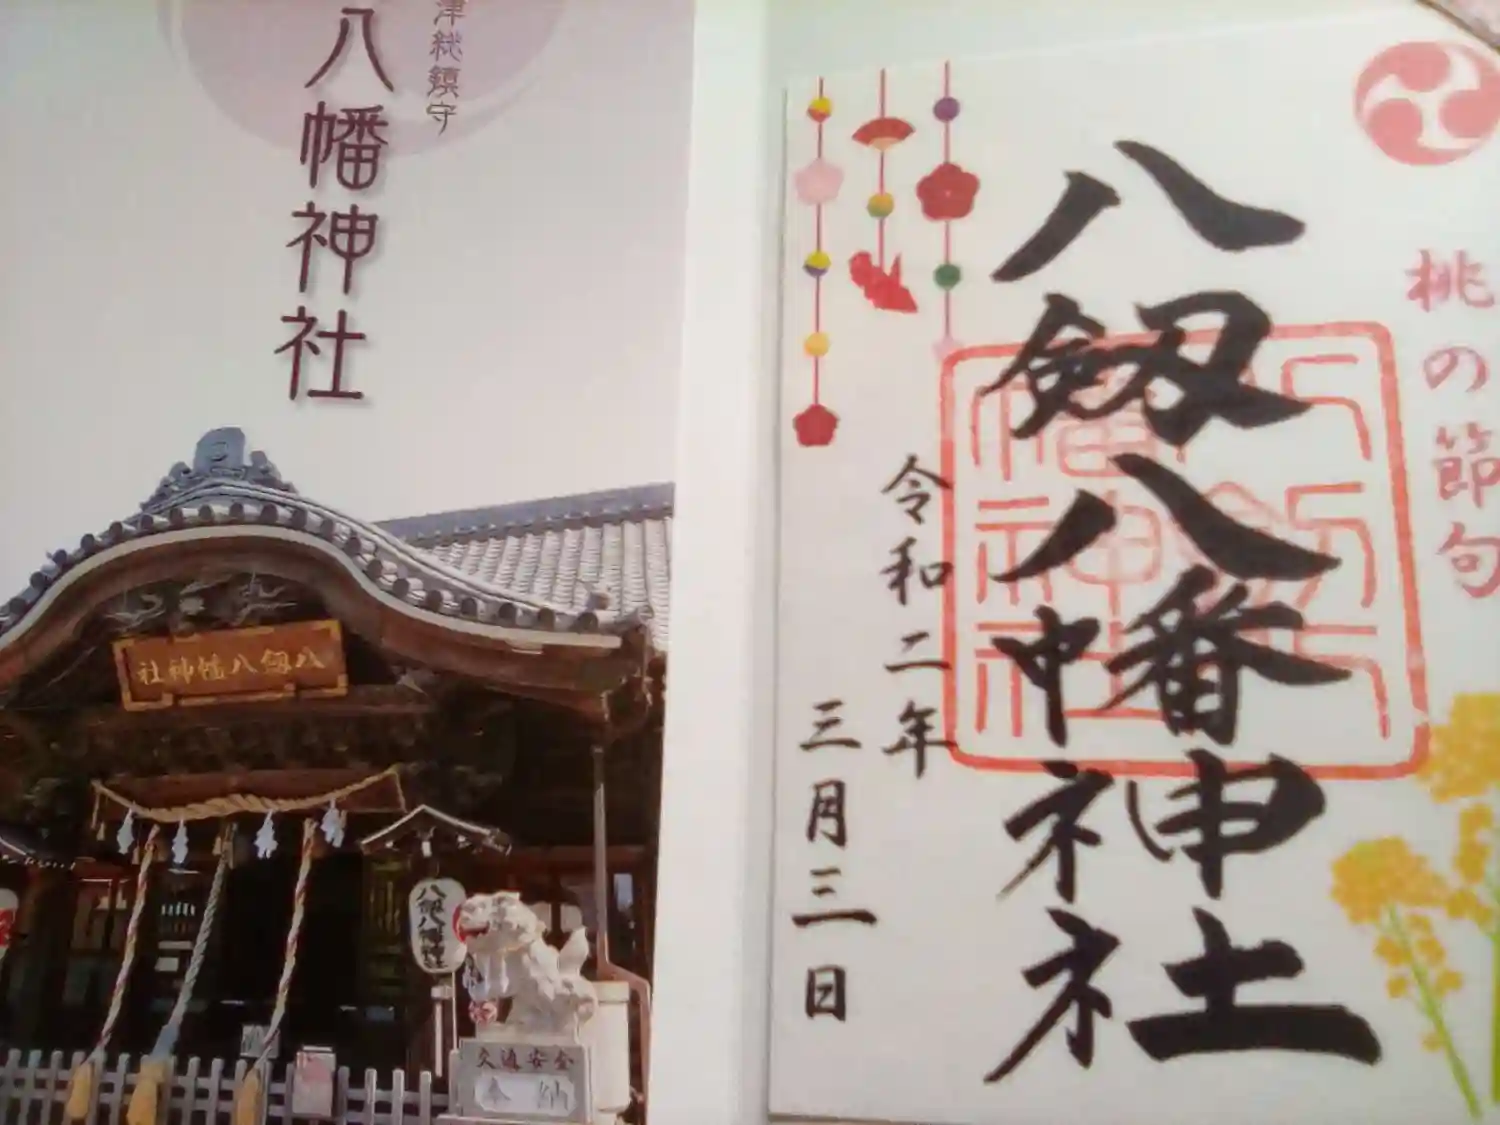 津総鎮守
八幡神社
八劔八幡神社
八劔八幡神社
交通安全
奉納
桃の節句
八劔八幡神社
令和二年
三月三日